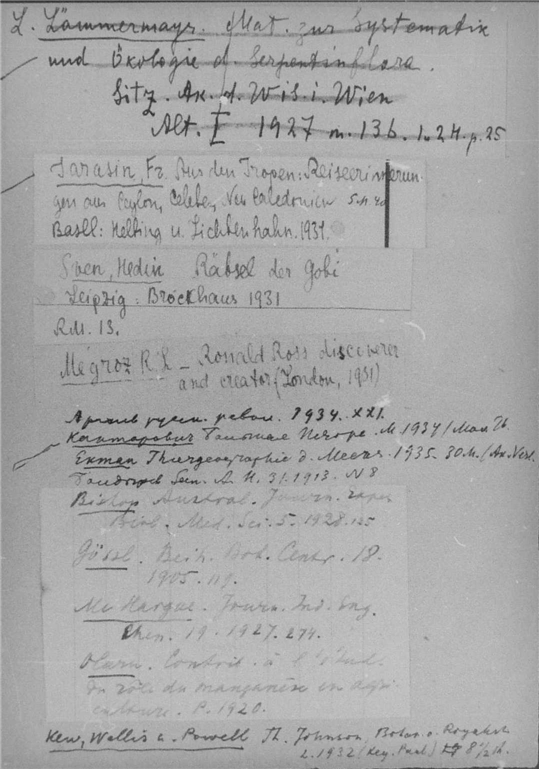 L. Lämmermayr. Mat. zur Systematik
und Ökologie d. Serpentinflora.
Sitz. Ak. d. Wis. i. Wien
Abt. I 1927 136. 1. 24. p. 25
Sarasin, Fr. Aus den Tropen: Reiseerinnerun-
gen aus Ceylon, Celebes, Neu Caledonien
Basel: Helbing u. Lichtenhahn. 1931.
Sven, Hedin Räbsel der Gobi
Leipzig: Brockhaus 1931
R.M. 13.
Mégroz R. L – Ronald Ross discoverer
and creator (London, 1931)
Архив русск. револ. 1934. XXI.
М 1937
Ekman Thiergeographie d. Meeres. 1935. 30 M. (Ak. Verl.
31. 1913. N 8
Bishop Austral. Journ. exper
Biol. Med. Sci. 5. 1928. 125
Gössl. Beih. Bot. Centr. 18.
1905. 119.
Mc Hargue. Journ. Ind. Eng.
Chem. 19. 1927. 274.
Olaru. Contrib. à l'étud.
du rôle du manganèse en agri-
culture. P. 1920.
Kew, Wallis a. Powell Th. Johnson, Botan.
L. 1932 (Keg. Paul) 8 1/2 sh.